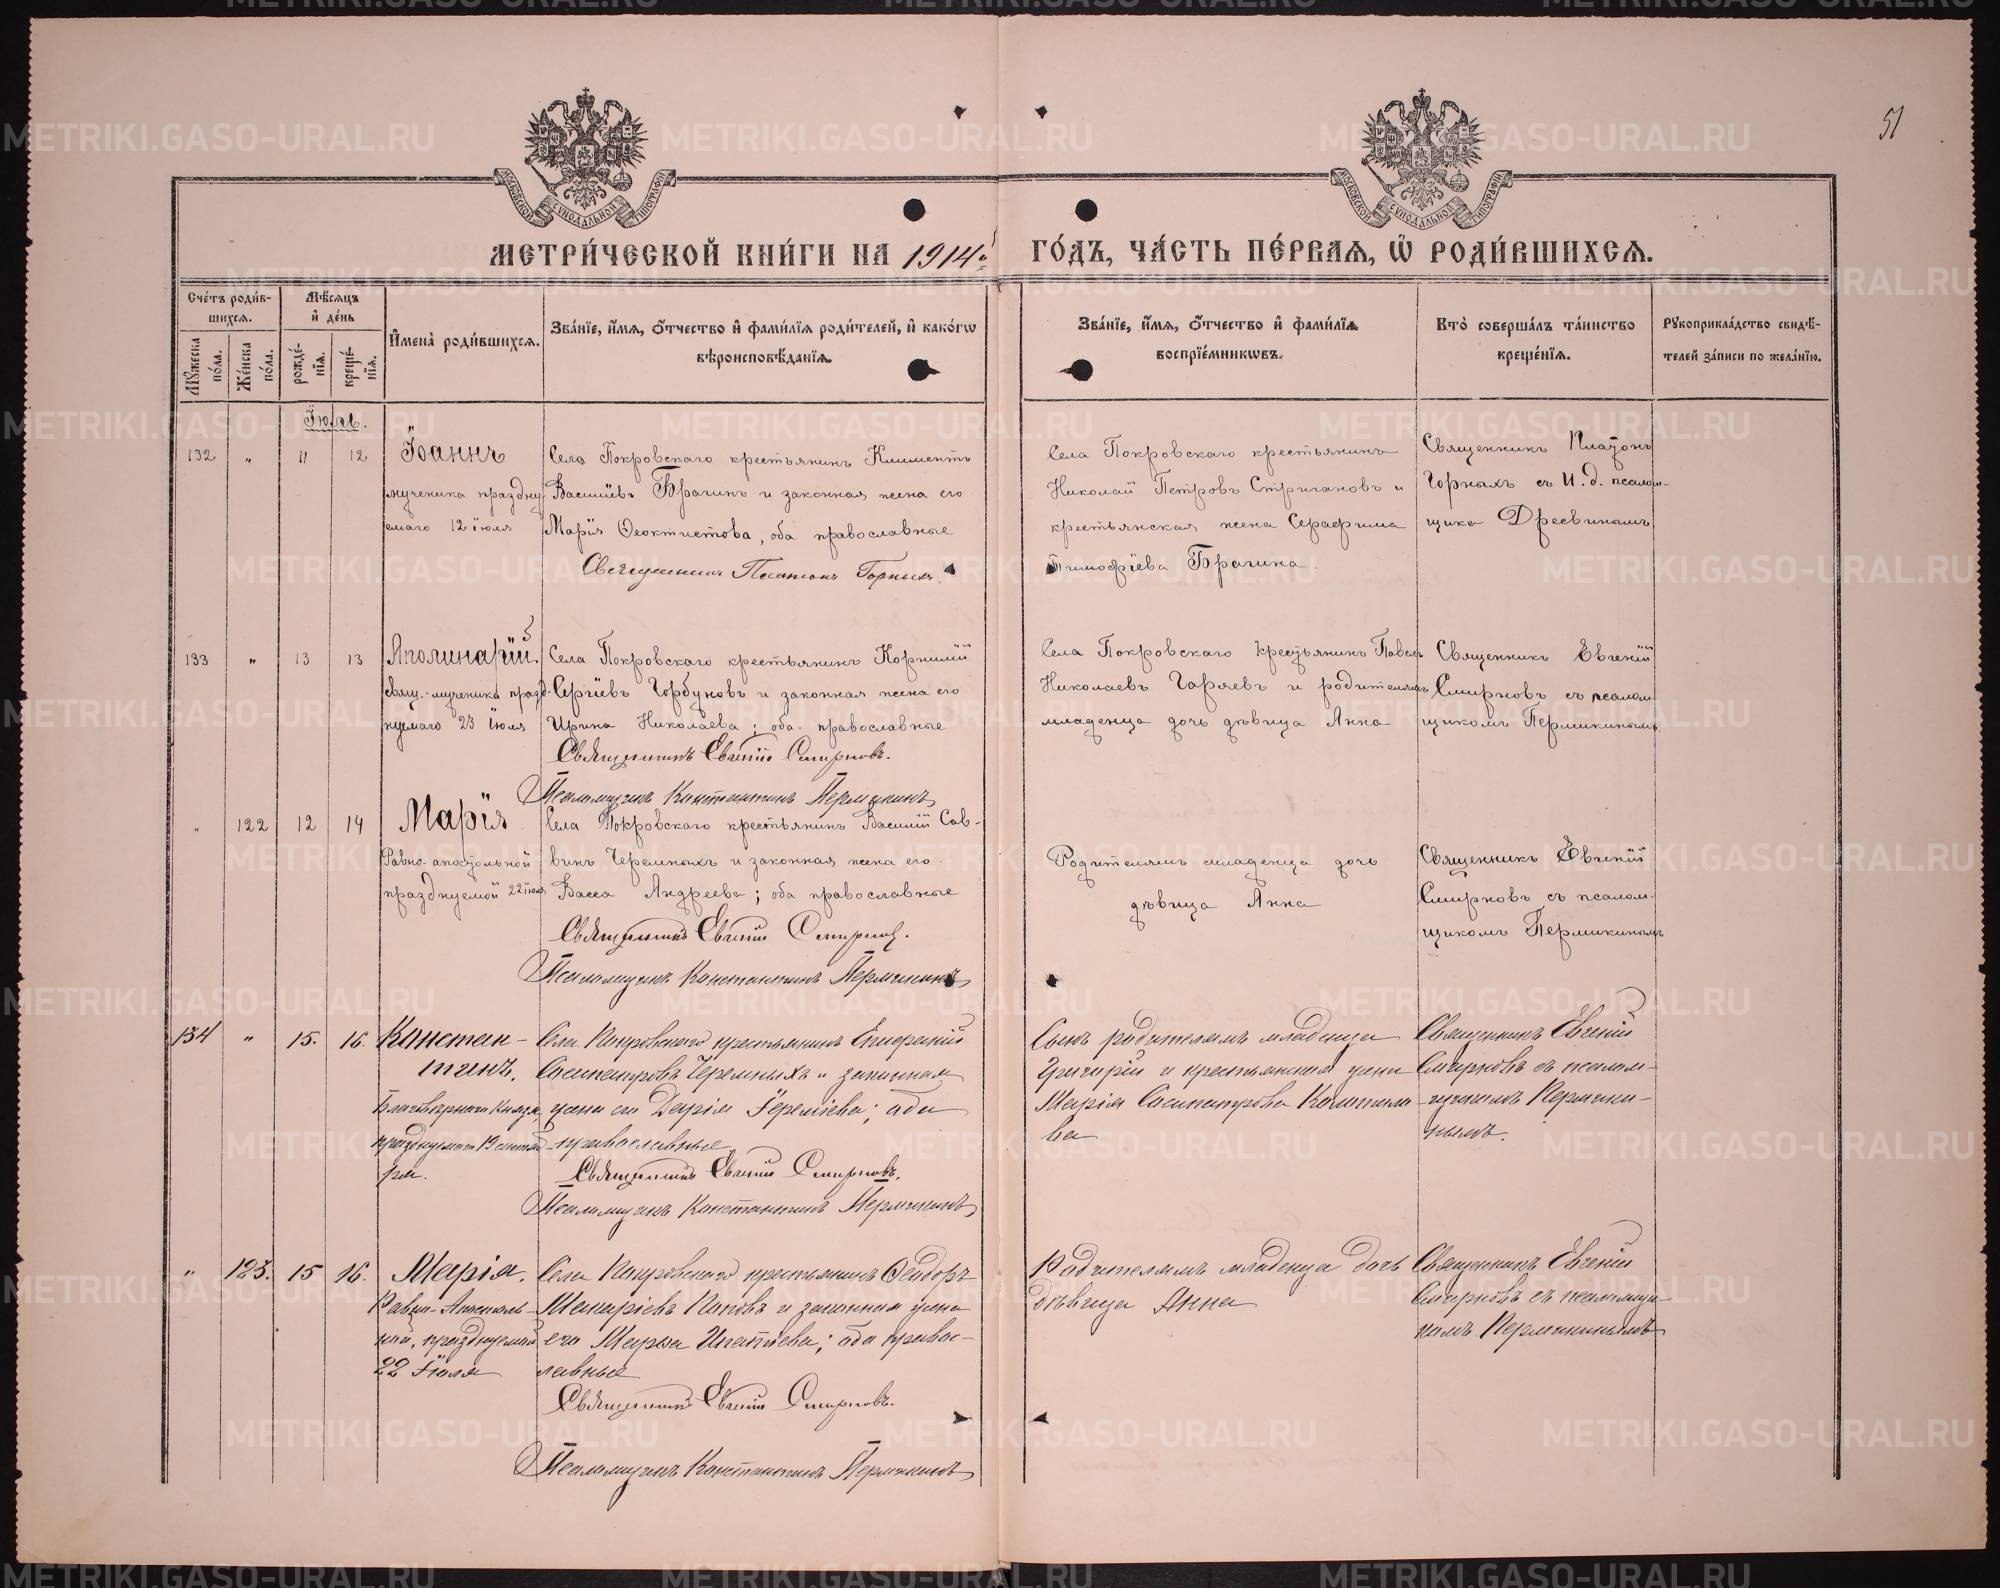 51
МОСКОВСКОЙ СѴНОДАЛЬНОЙ ТИПОГРАФІИ
МОСКОВСКОЙ СѴНОДАЛЬНОЙ ТИПОГРАФІИ
МЕТРИ́ЧЕСКОЙ КНИ́ГИ НА 1914й ГО́ДЪ, ЧА́СТЬ ПЕ́РВАѦ, Ѽ РОДИ́ВШИХСѦ.
Сче́тъ роди́в-
шихсѧ.
Мꙋжеска по́ла.
Же́нска по́ла.
Мѣ́сѧцъ
и҆ де́нь
рожде́-
нїѧ.
креще́-
нїѧ.
И҆мена̀ роди́вшихсѧ.
Зва́нїе, и҆́мѧ, ѻ҆́тчество и҆ фами́лїѧ роди́телей, и҆ како́гѡ
вѣроисповѣ́данїѧ.
Зва́нїе, и҆́мѧ, ѻ҆́тчество и҆ фами́лїѧ
воспрїе́мникѡвъ.
Кто̀ соверша́лъ та́инство
креще́нїѧ.
Рꙋкоприкла́дство свидѣ́-
телей за́писи по жела́нїю.
Іюль.
132 " 11 12
Іоаннъ
мученика праздну
емаго 12 іюля
Села Покровскаго крестьянинъ Климентъ
Васильевъ Брагинъ и законная жена его
Марія Ѳеоктистова, оба православные
Священникъ Платонъ Горныхъ.
Села Покровскаго крестьянинъ
Николай Петровъ Стригановъ и
крестьянская жена Серафима
Тимофіева Брагина
Священникъ Платонъ
Горныхъ съ И.д. псалом-
щика Дресвинымъ
133 " 13 13
Аполинарій.
свящ.-мученика празд-
нуемаго 23 іюля
Села Покровскаго крестьянинъ Корнилій
Сергіевъ Горбуновъ и законная жена его
Ирина Николаева; оба православные
Священникъ Евгеній Смирновъ.
Псаломщикъ Константинъ Пермикинъ
Села Покровскаго крестьянинъ Павелъ
Николаевъ Горяевъ и родителямъ
младенца дочь дѣвица Анна
Священникъ Евгеній
Смирновъ съ псалом
щикомъ Пермикинымъ
" 122 12 14
Марія
Равно-апостольной
празднуемой 22 іюля
Села Покровскаго крестьянинъ Василій Сав-
винъ Черемныхъ и законная жена его
Васса Андреева; оба православные
Священникъ Евгеній Смирновъ.
Псаломщикъ Константинъ Пермикинъ
Родителямъ младенца дочь
дѣвица Анна
Священникъ Евгеній
Смирновъ съ псалом-
щикомъ Пермикинымъ
134 " 15. 16.
Констан-
тинъ.
Благовѣрнаго Князя,
празднуемаго 19 сентяб
ря.
Села Покровскаго крестьянинъ
Сосипатровъ Черемныхъ и законная
жена его Дарія Іереміева; оба
православные
Священникъ Евгеній Смирновъ.
Псаломщикъ Константинъ Пермикинъ
Сынъ родителямъ младенца
Григорій и крестьянская жена
Марія Сосипатрова
ва
Священникъ Евгеній
Смирновъ съ псалом-
щикомъ Пермики-
нымъ.
" 123. 15 16.
Марія.
Равно-Апостоль-
ной, празднуемой
22 Іюля
Села Покровскаго крестьянинъ Ѳеодоръ
Макаріевъ Поповъ и законная жена
его Марѳа Игнатіева; оба правос-
лавные
Священникъ Евгеній Смирновъ.
Псаломщикъ Константинъ Пермикинъ
Родителямъ младенца дочь
дѣвица Анна
Священникъ Евгеній
Смирновъ съ псаломщи
комъ Пермикинымъ
METRIKI.GASO-URAL.RU